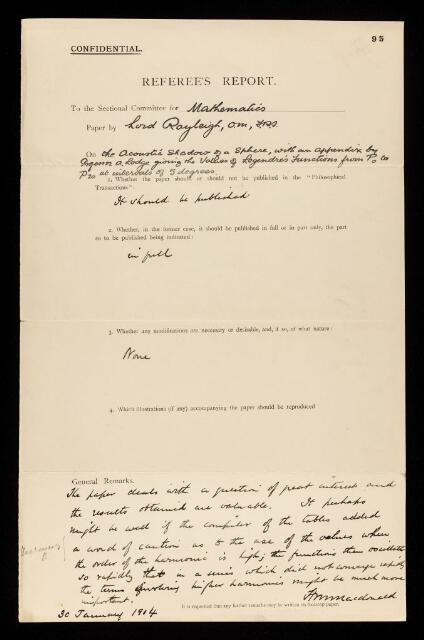 95
CONFIDENTIAL.
REFEREE'S REPORT.
To the Sectional Committee for Mathematics
Paper by Lord Rayleigh, O.M., F.R.S.
On the Acoustic Shadow of a Sphere, with an appendix by
Professor A. Lodge giving the Values of Legendre's Functions from P₀ to
P₂₀ at intervals of 5 degrees.
1. Whether the paper should or should not be published in the "Philosophical
Transactions"
It should be published
2. Whether, in the former case, it should be published in full or in part only, the part
so to be published being indicated:
in full
3. Whether any modifications are necessary or desirable, and, if so, of what nature:
None
4. Which illustrations (if any) accompanying the paper should be reproduced
General Remarks.
The paper deals with a question of great interest and
the results obtained are valuable. It perhaps
might be well if the computer of the tables added
a word of caution as to the use of the values when
the order of the harmonic is high; the functions then oscillate
so rapidly that in a series which did not converge rapidly
the terms involving higher harmonics might be much more
important.
H M Macdonald
It is requested that any further remarks may be written on foolscap paper.
30 January 1904